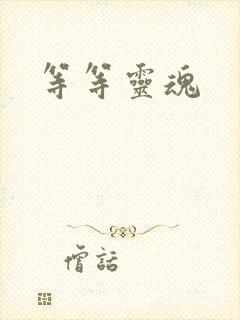 等等靈魂
僧話